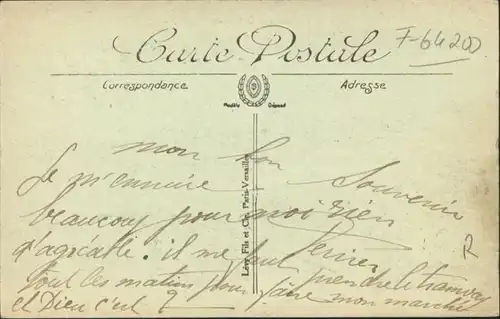 F-64200
Carte Postale
Correspondance
Adresse
Modèle Déposé
Lévy Fils et Cie, Paris-Versailles
mon bon Souvenir
Je m'ennuie
beaucoup pour moi rien
d'agréable. il me faut
prendre le tramway
tout les matins pour faire mon marché
et Dieu c'est
R